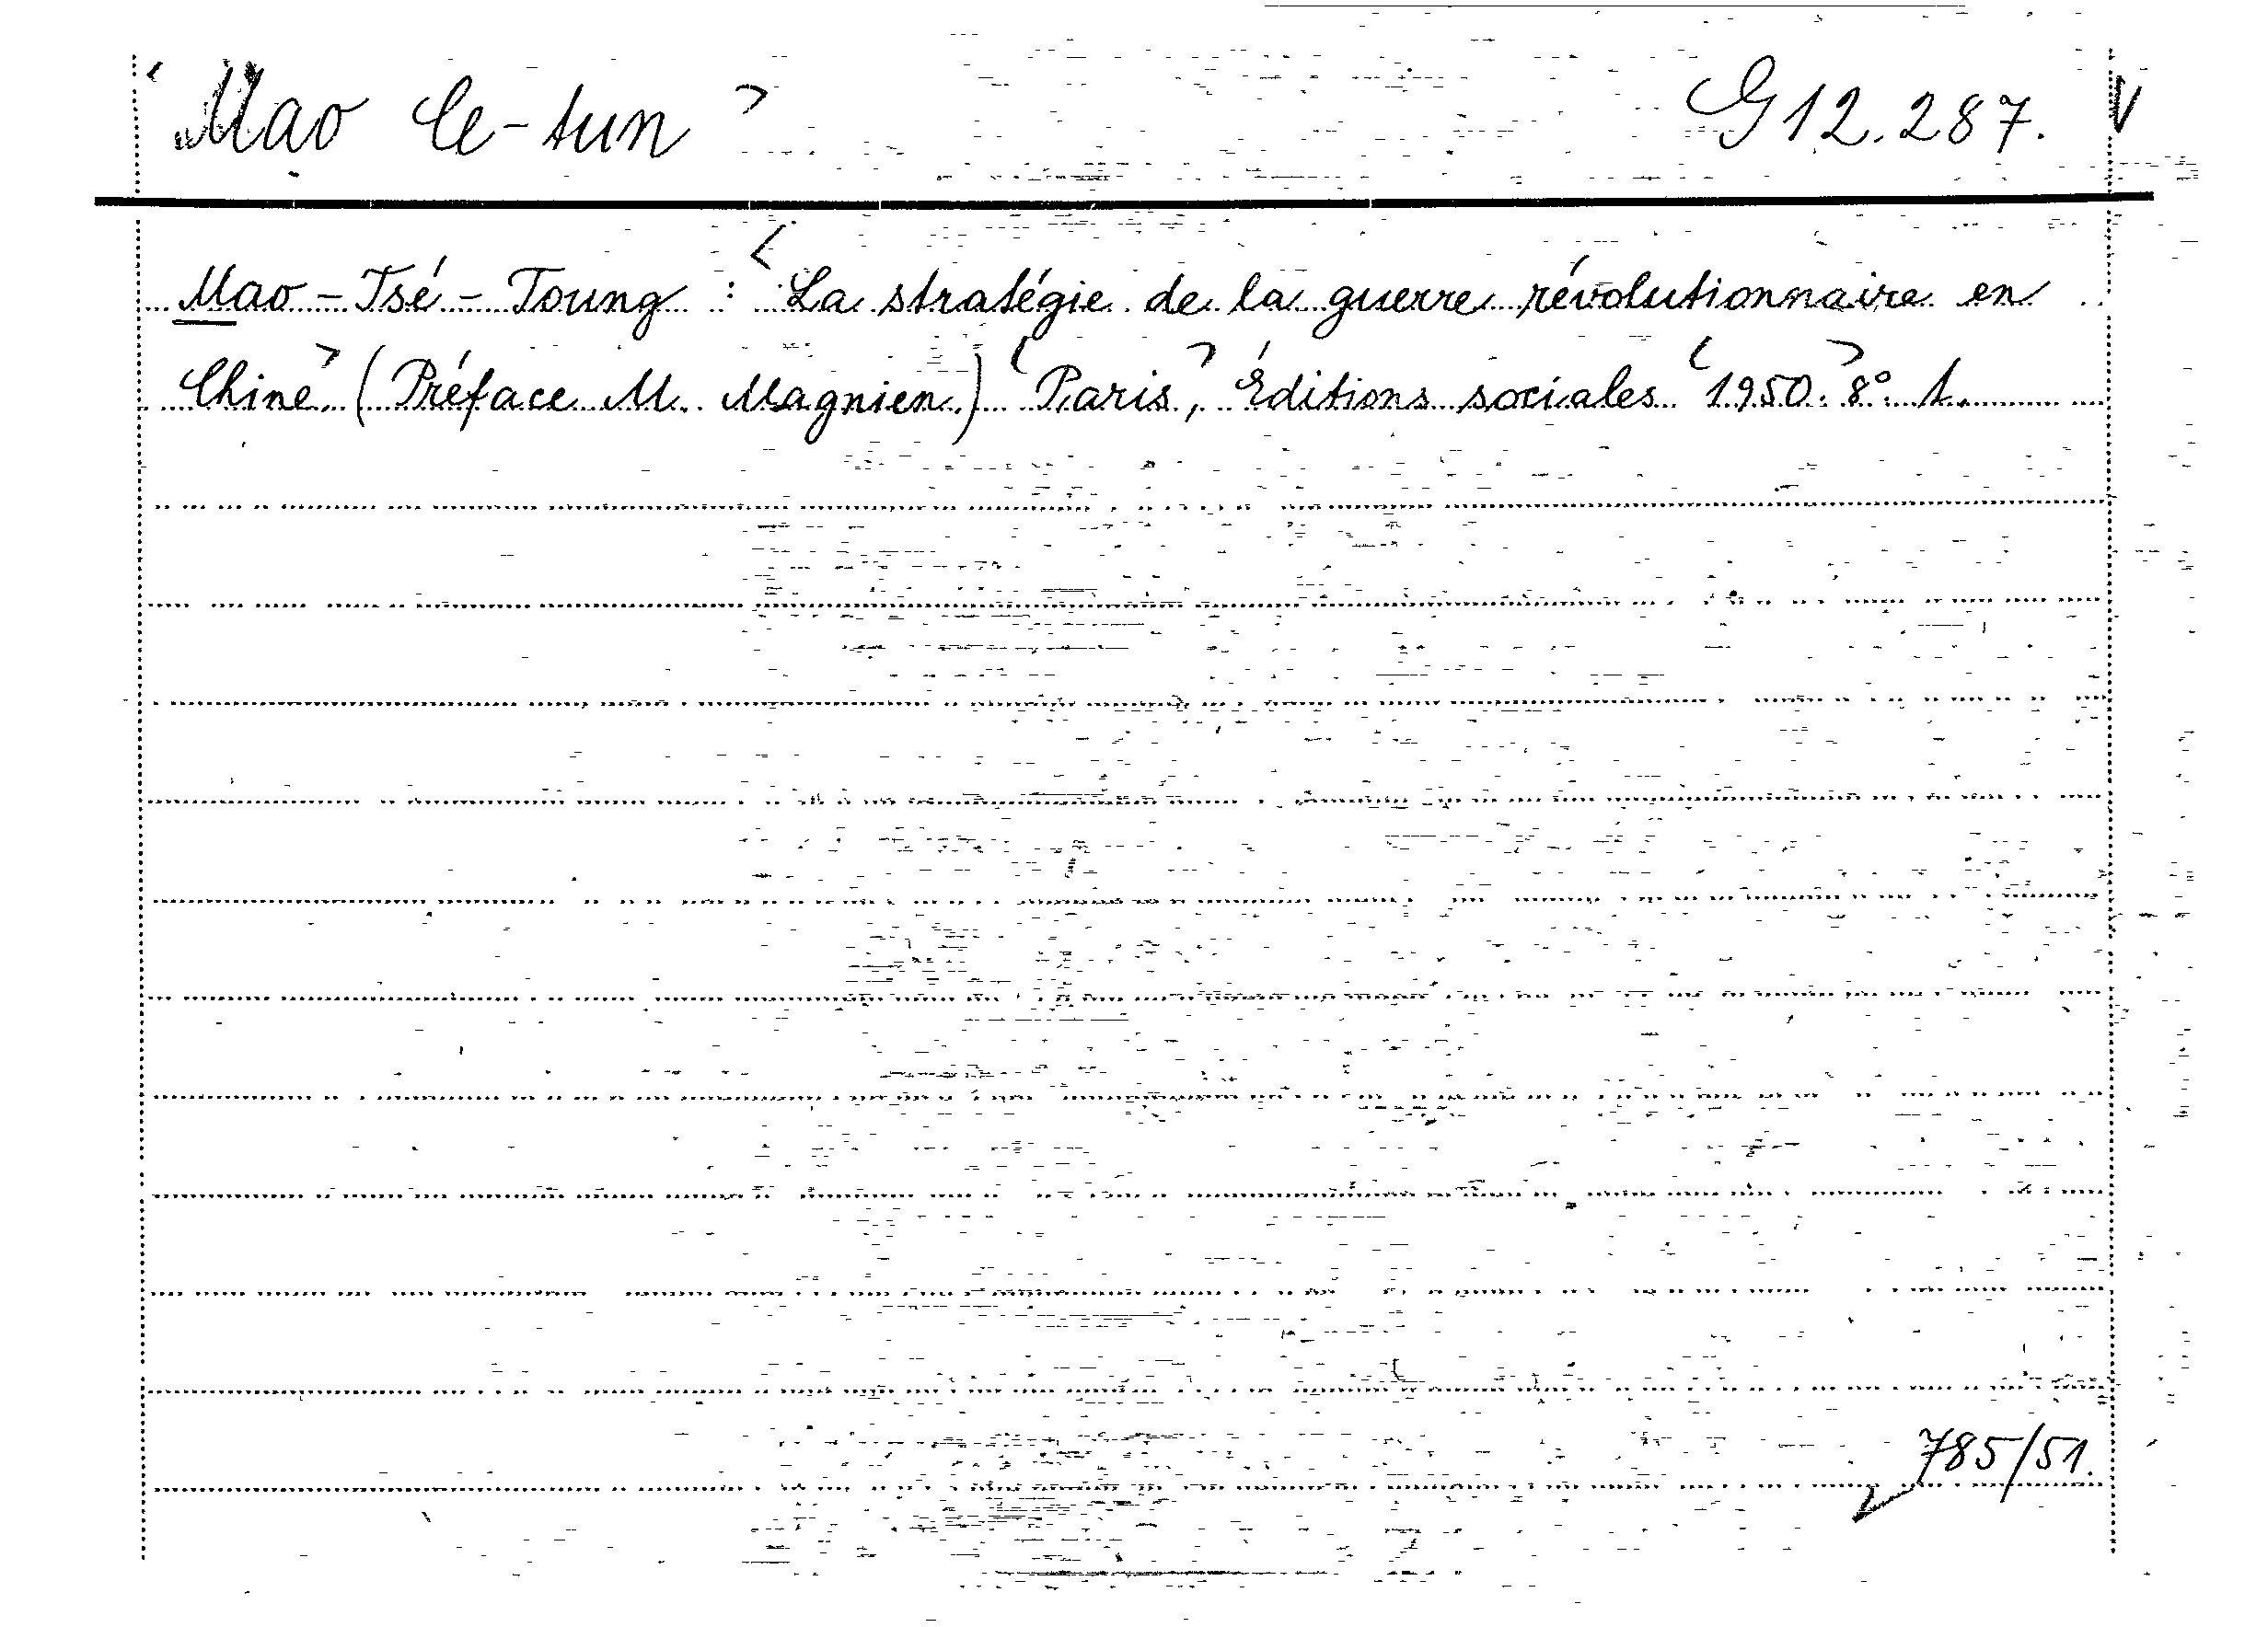 Mao Ce-tun G 12.287. V
Mao-Tsé-Toung : La stratégie de la guerre révolutionnaire en
Chine. (Préface M. Magnien.) Paris, Éditions sociales 1950. 8° 1.
785/51.